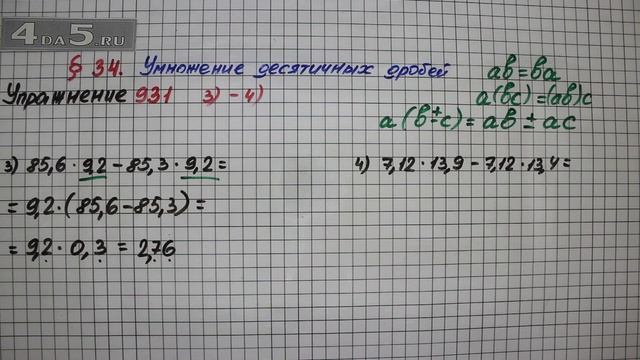 4DA5.RU
§ 34. Умножение десятичных дробей
ab = ba
Упражнение 931 3) - 4)
a(bc) = (ab)c
a(b ± c) = ab ± ac
3) 85,6 · 9,2 - 85,3 · 9,2 =
= 9,2 · (85,6 - 85,3) =
= 9,2 · 0,3 = 2,76
4) 7,12 · 13,9 - 7,12 · 13,4 =